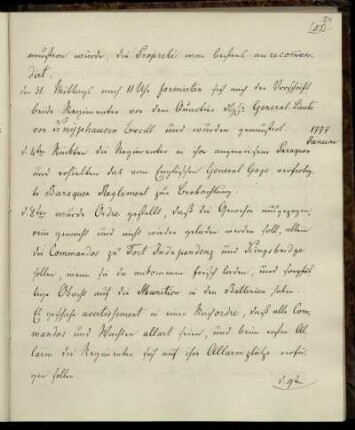 (51)
mustern würde, die Propreté war bestens an recomman-
dirt.
den 31. Mittags nach 11 Uhr formirten sich nach der Vorschrift
beide Regimenter vor dem Quartier General Lieut
von Knyphausen Excell und wurden gemustert.
1777
Januar
d. 4ten Rückten die Regimenter in ihre angewiesene Baraquen
und erhielten das vom Englischen General Gage verfertig-
te Baraquen Reglement zur Beobachtung.
d. 8ten wurde Ordre gestellt, daß die Gewehre ausgezogen,
rein gemacht und nicht wieder geladen werden soll, allein
die Commandos zu Fort Independenz und Kingsbridge
sollen, wenn sie da ankommen frisch laden, und sorgfäl-
tige Obacht auf die Munition in den Batterien haben.
Es geschahe avertissement in einer Nachordre, daß alle Com-
mandos und Wachten allart seien, und beim ersten Al-
larm die Regimenter sich auf ihre Allarmplätze verfü-
gen sollen.
d. 9te